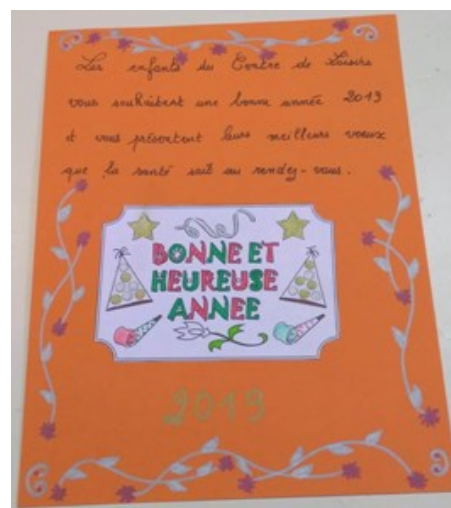 Les enfants du Centre de Loisirs
vous souhaitent une bonne année 2019
et vous présentent leurs meilleurs voeux
que la santé soit au rendez-vous.
BONNE ET
HEUREUSE
ANNEE
2019